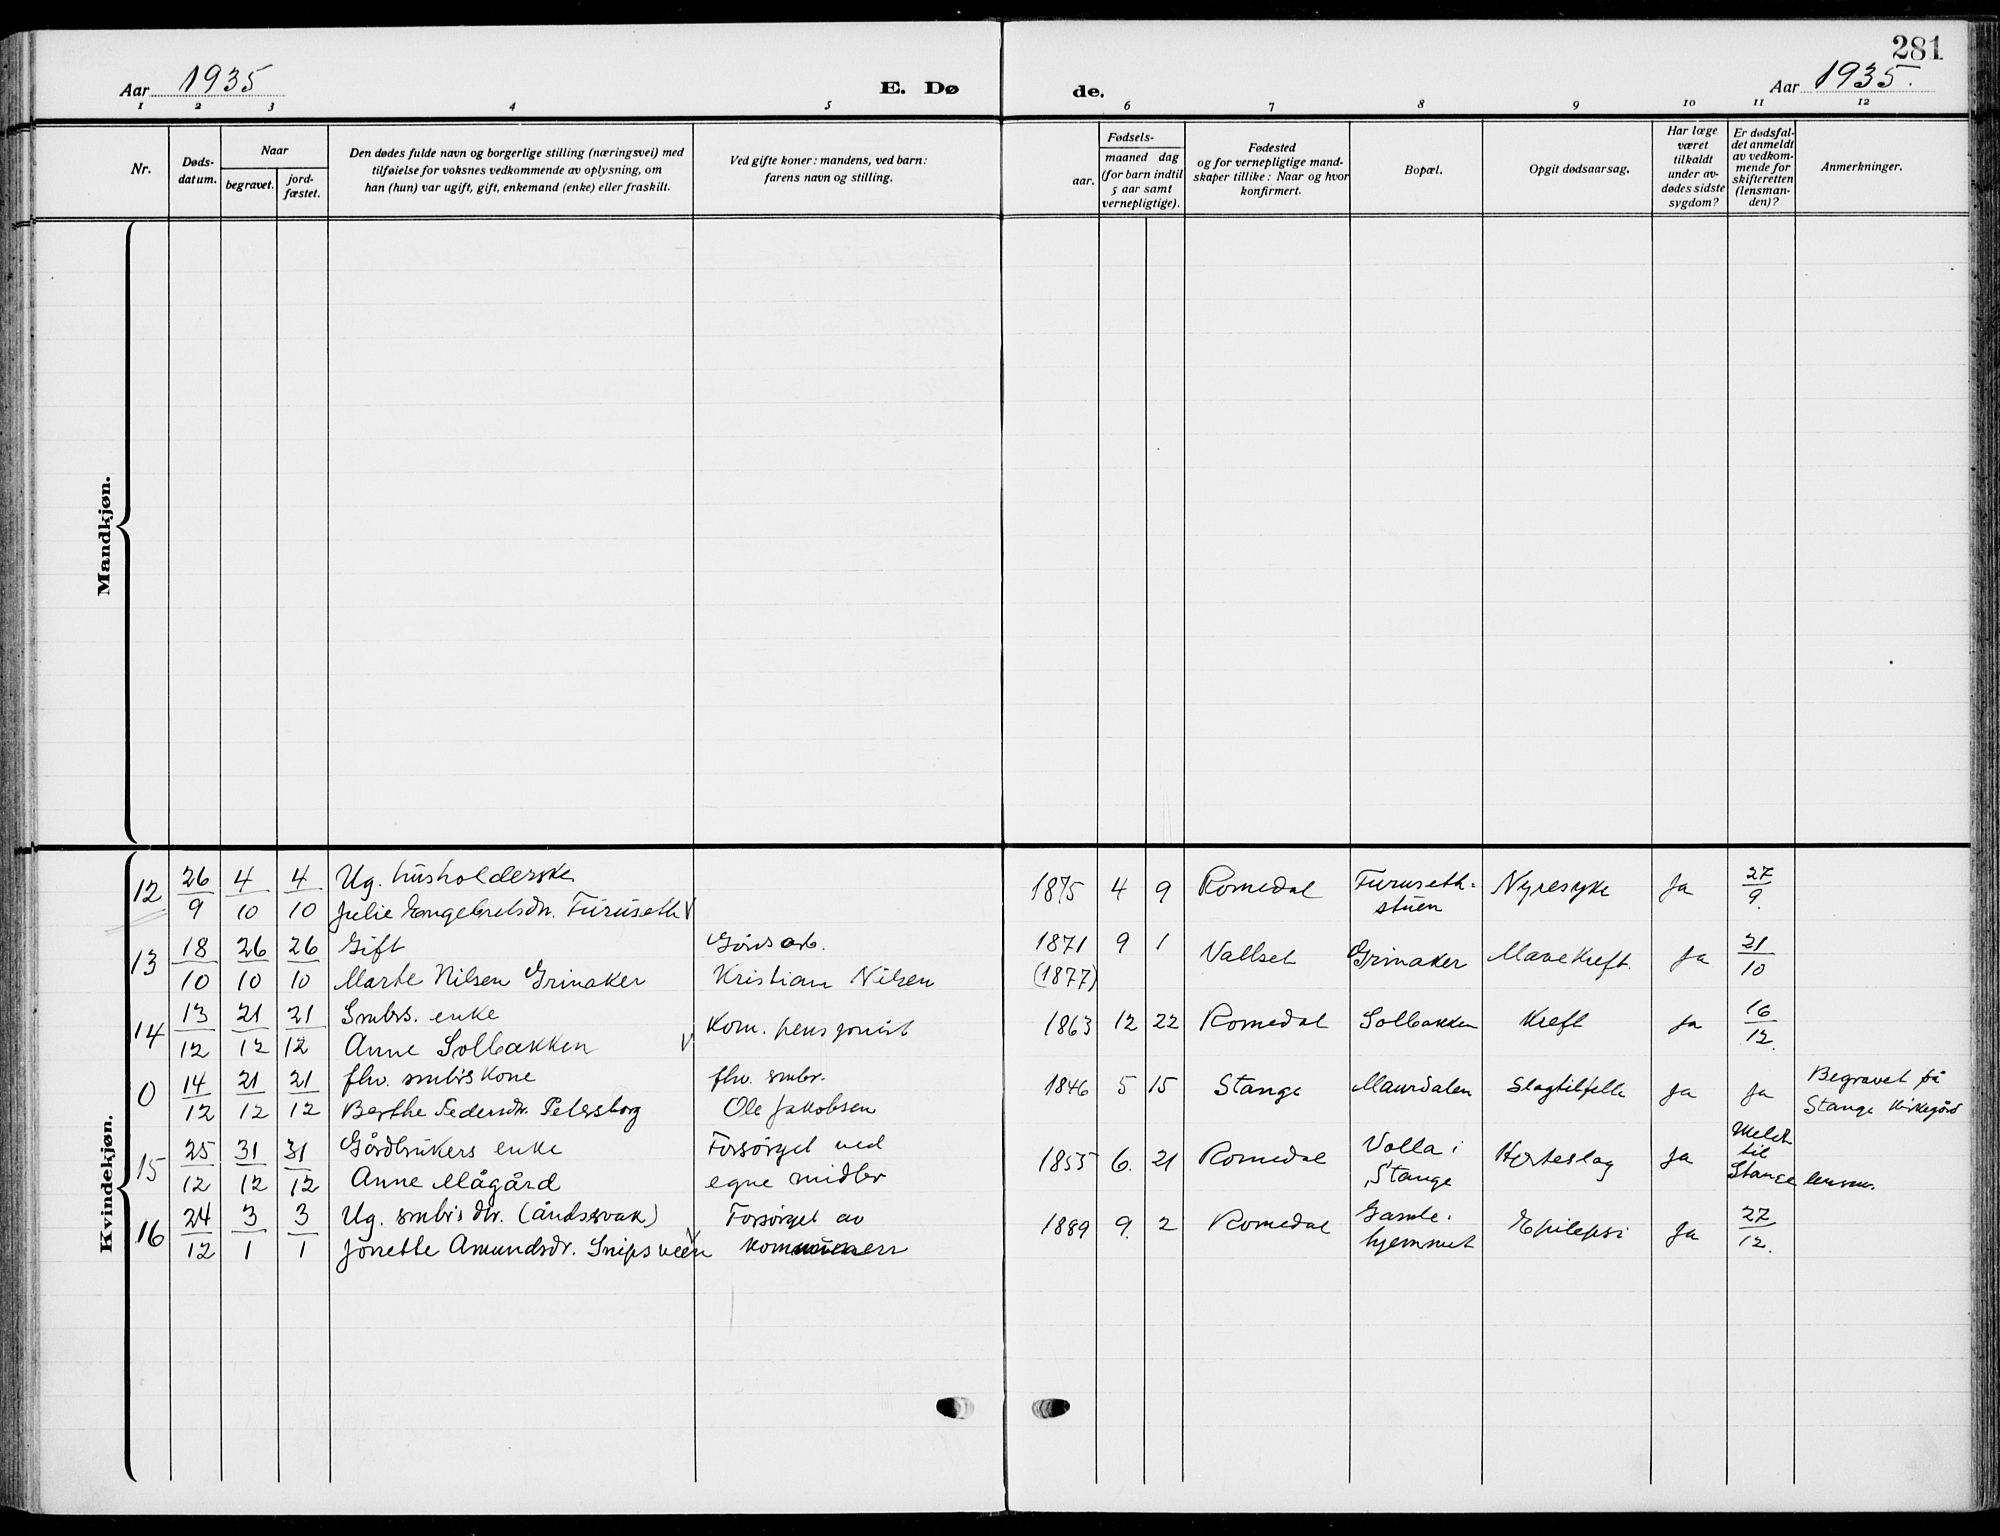 281
Aar 1935
E. Dø
de.
Aar 1935.
1 2 3 4 5 6 7 8 9 10 11 12
Nr.
Døds-
datum.
Naar
begravet.
jord-
fæstet.
Den dødes fulde navn og borgerlige stilling (næringsvei) med
tilføielse for voksnes vedkommende av oplysning, om
han (hun) var ugift, gift, enkemand (enke) eller fraskilt.
Ved gifte koner: mandens, ved barn:
farens navn og stilling.
Fødsels-
aar.
maaned dag
(for barn indtil
5 aar samt
vernepligtige).
Fødested
og for vernepligtige mand-
skaper tillike: Naar og hvor
konfirmert.
Bopæl.
Opgit dødsaarsag.
Har læge
været
tilkaldt
under av-
dødes sidste
sygdom?
Er dødsfal-
det anmeldt
av vedkom-
mende for
skifteretten
(lensman-
den)?
Anmerkninger.
Mandkjøn.
Kvindekjøn.
12 26/9 4/10 4/10 Ug. husholderske
Julie Engebretsdr. Furuseth V
1875 4 9 Romedal Furuseth-
stuen
Nyresyke Ja 27/9.
13 18/10 26/10 26/10 Gift
Marte Nilsen Grinaker
Gårdsarb.
Kristian Nilsen
1871
(1877)
9 1 Vallset Grinaker Mavekreft. Ja 21/10
14 13/12 21/12 21/12 Smbrs. enke
Anne Solbakken V
Kom. pensjonist
1863 12 22 Romedal Solbakken Kreft Ja 16/12.
0 14/12 21/12 21/12 fhv. smbr's kone
Berthe Pedersdr. Petersborg
fhv. smbr.
Ole Jakobsen
1846 5 15 Stange Maurdalen Slagtilfelle Ja Ja
Begravet på
Stange kirkegård
15 25/12 31/12 31/12 Gårdbrukers enke
Anne Mågård
Forsørget ved
egne midler
1855 6. 21 Romedal Volla i
Stange
Hjerteslag Ja
Meldt
til
Stange lensm.
16 24/12 3/1 3/1 Ug. smbr's dtr. (åndssvak)
Jonette Amundsdr. Snipsveen V
Forsørget av
kommunen
1889 9. 2 Romedal Gamle-
hjemmet
Epilepsi Ja 27/12.